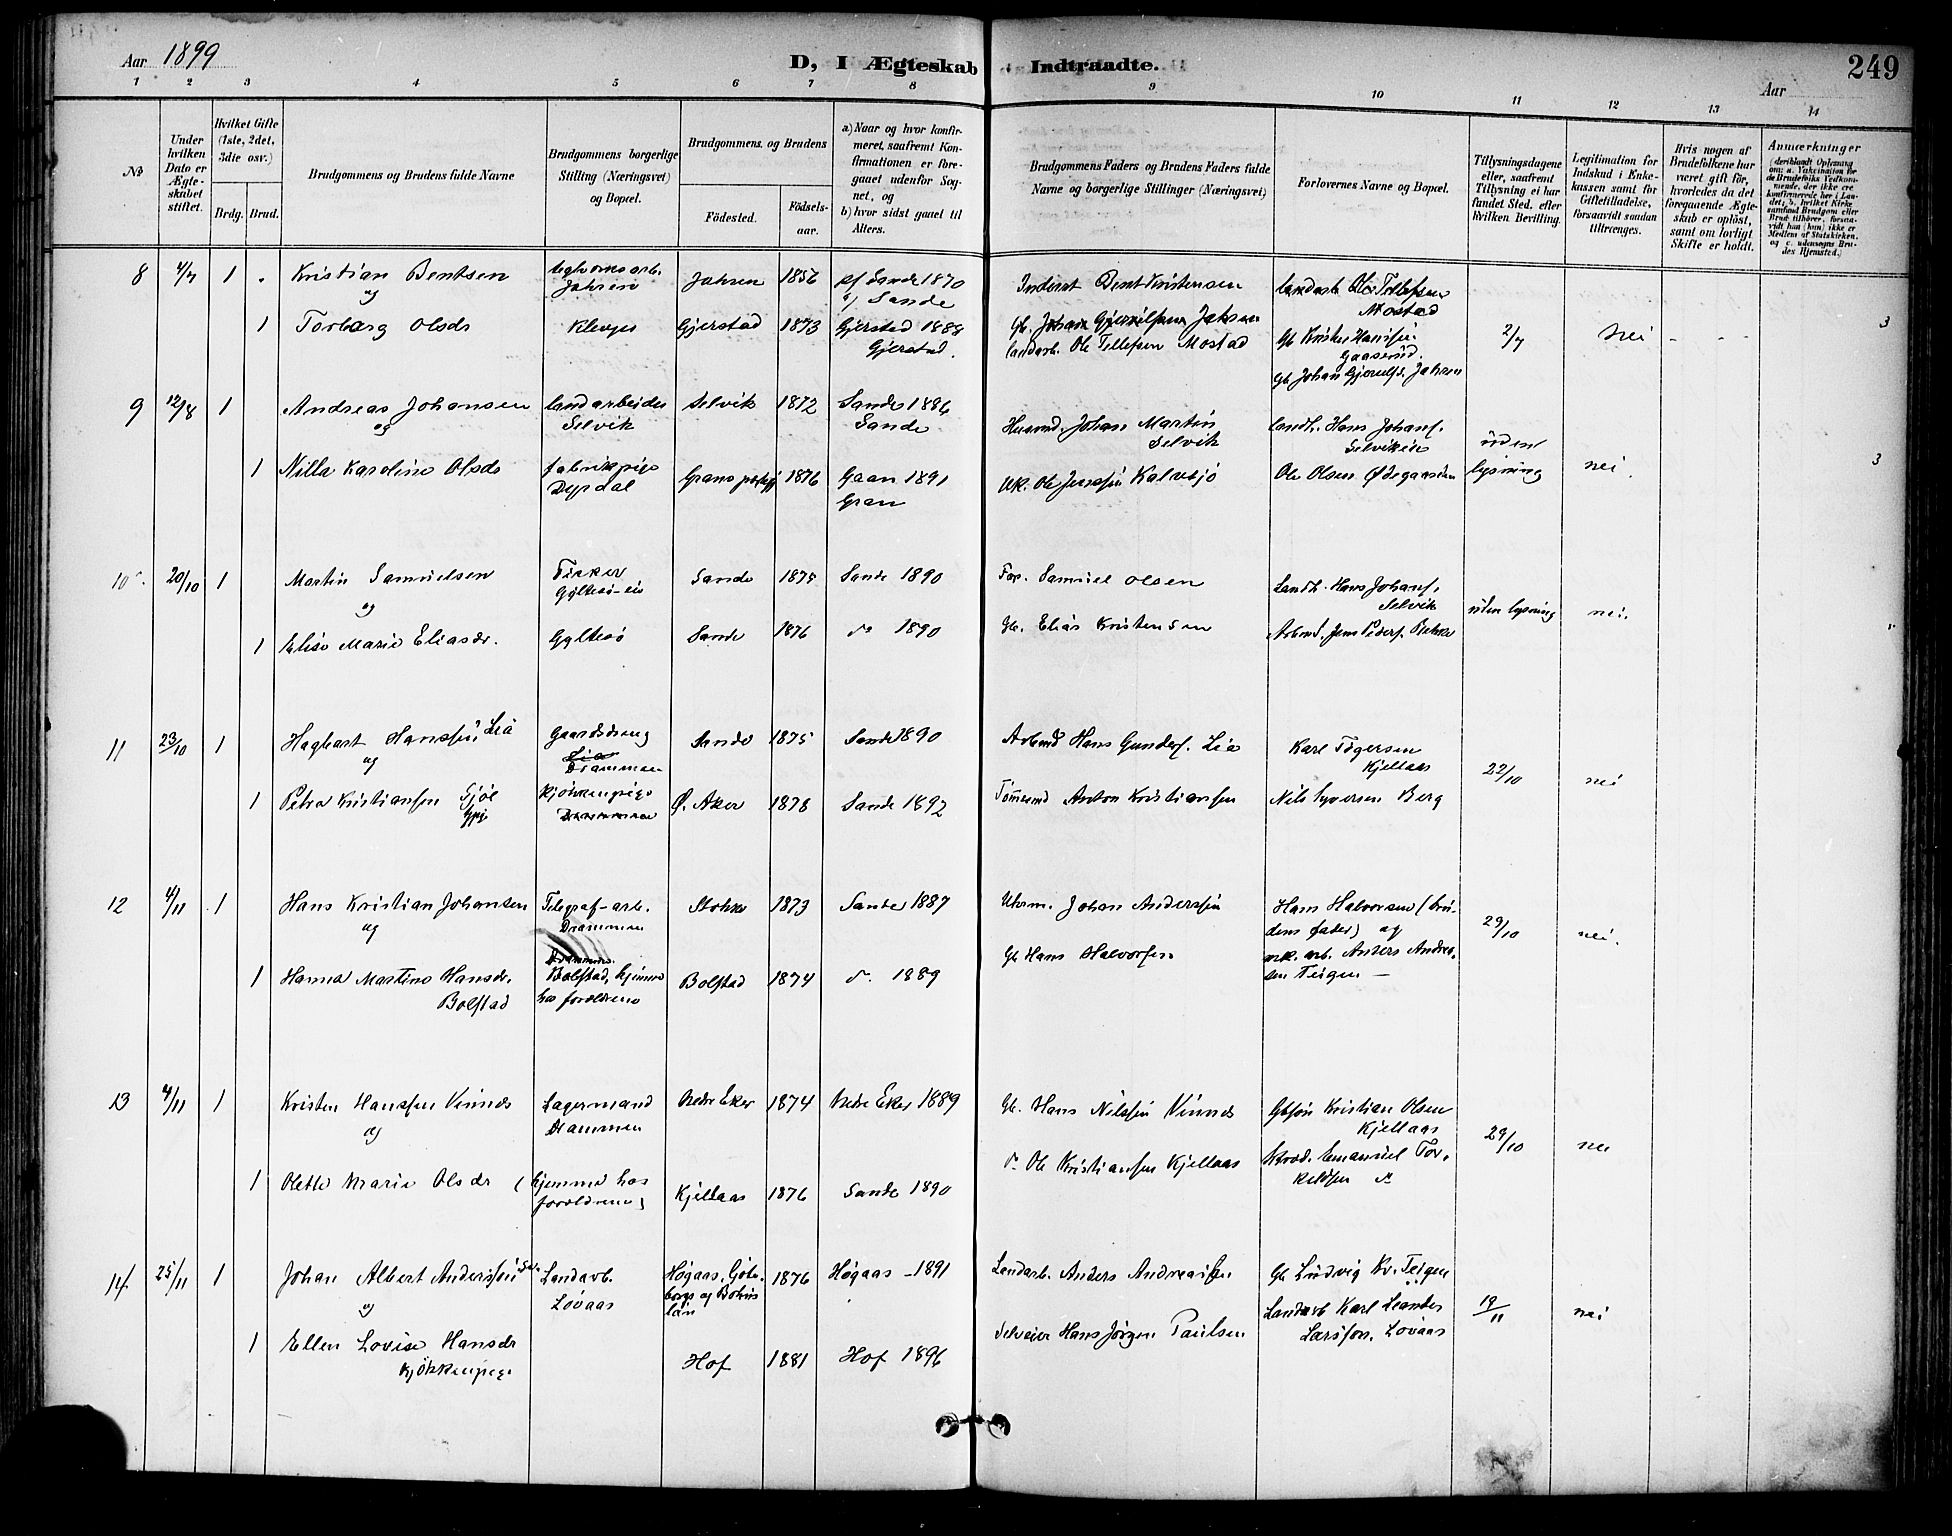 Aar 1899
D, I Ægteskab Indtraadte.
249
Aar
1 2 3 4 5 6 7 8 9 10 11 12 13 14
№
Under hvilken Dato er Ægteskabet stiftet.
Hvilket Gifte (1ste, 2det, 3die osv.)
Brdg. Brud.
Brudgommens og Brudens fulde Navne
Brudgommens borgerlige Stilling (Næringsvei) og Bopæl.
Brudgommens og Brudens
Fødested.
Fødselsaar.
a) Naar og hvor konfirmeret, saafremt Konfirmationen er foregaaet udenfor Sognet, og
b) hvor sidst gaaet til Alters.
Brudgommens Faders og Brudens Faders fulde Navne og borgerlige Stillinger (Næringsvei)
Forlovernes Navne og Bopæl.
Tillysningsdagene eller, saafremt Tillysning ei har fundet Sted, efter hvilken Bevilling.
Legitimation for Indskud i Enkekassen samt for Giftetilladelse, forsaavidt saadan tiltrænges.
Hvis nogen af Brudefolkene har været gift før, hvorledes da det foregaaende Ægteskab er opløst, samt om lovligt Skifte er holdt.
Anmærkninger
8 4/7 1 Kristian Bentsen Jahren Jahren 1856 Sande 1870
og Sande
1 Torbarg Olsdr Klevjer Gjerstad 1873 Gjerstad 1888
Gjerstad.
Inderst Bent Kristensen
Gb. Johan Jahren
landarb. Ole Tellefsen Mostad
landarb. Ole Tellefsen
Mostad
Gb Hansen
Gaaserud.
Gb Johan Gjerulfs. Jahren
2/7 nei - - - 3
9 12/8 1 Andreas Johansen landarbeider Selvik 1872 Sande 1886
og Selvik Sande
1 Nilla Karoline Olsdr fabrikpige Grans 1876 Gran 1891
Dyrdal Gran
Husmd. Johan Martin
Selvik
Ole Jenssen Kalvsjø
Landh. Hans Johans.
Ole Olsen Ødegaarden
uden
lysning nei. 3
10 20/10 1 Martin Samuelsen Fisker Sande 1875 Sande 1890
og
1 Elise Marie Eliasdr. Gyltesø Sande 1876 do 1890
For. Samuel Olsen
Gb. Elias Kristensen
Landh. Hans Johans.
Selvik
Arbmd. Jens Peders.
uten lysning nei. "
11 23/10 1 Hagbart Hanssen Lia Gaardsdreng Sande 1875 Sande 1890
og Lia
Drammen
1 Petra Kristiansen Kjøkkenpige Ø. Aker 1878 Sande 1892
Drammen
Arbmd Hans Gunders. Lia
Tømmermd Anton Kristiansen
Karl Tøgersen
Kjellaas
Nils Iversen Berg
22/10 nei
12 4/11 1 Hans Kristian Johansen Telegraf-arb. Stokke 1873 Sande 1887
og Drammen
Drammen.
1 Hanna Martine Hansdr. Bolstad, hjemme Bolstad 1874 do 1889
Bolstad hos forældrene
Johan Anderssen
Gb Hans Halvorsen
Hans Halvorsen (brudens fader) og
arb. Anders Andreasen Teigen —
29/10 nei.
13 4/11 1 Kristen Hanssen Vinnes Lagermand Nedre Eker 1874 Nedre Eker 1889
og Drammen
1 Olette Marie Olsdr (hjemme hos Kjellaas 1876 Sande 1890
forældrene)
Gb. Hans Nilssen Vinnes
do Ole Kristiansen Kjellaas
Gbsøn Kristian Olsen
Kjellaas
Skræd. Emanuel Torkildsen do
29/10 nei
14. 25/11 1 Johan Albert Anderssen Landarb. Høgaas, Gøteborgs og Bohus län 1876 Høgaas - 1891
og Løvaas
1 Ellen Lovise Hansdr Hof 1881 Hof 1896
Kjøkkenpige
Landarb. Anders Andreassen
Selveier Hans Jørgen Paulsen
Gb Ludvig Kr. Teigen
Landarb Karl Leander
Larsson, Løvaas
19/11 nei